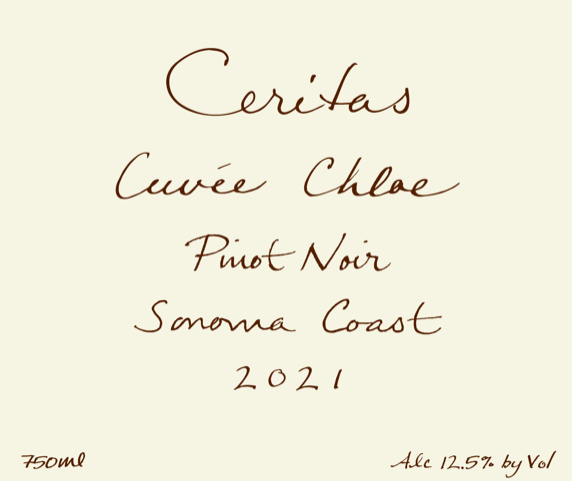 Ceritas
Cuvée Chloe
Pinot Noir
Sonoma Coast
2021
750ml
Alc 12.5% by Vol